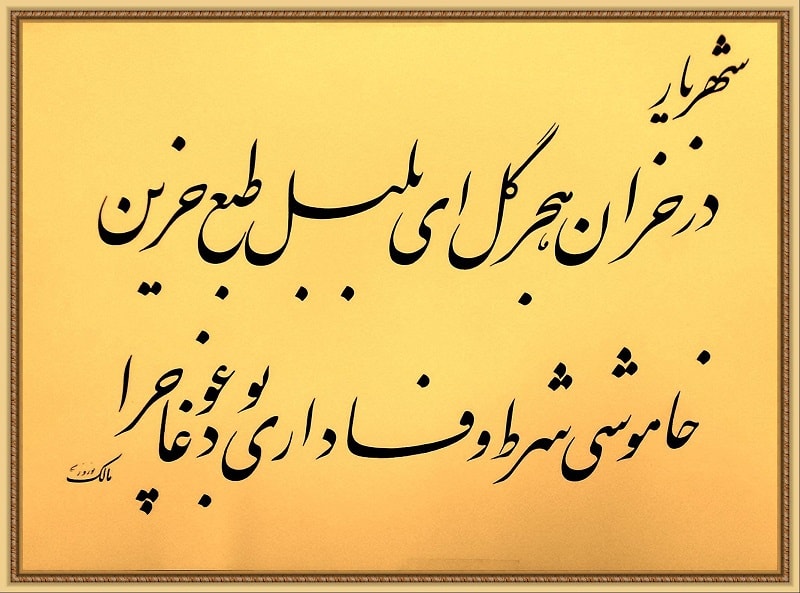 شهریار
در خزان هجر گل ای بلبل طبع حزین
خاموشی شرط وفاداری بود غوغا چرا
مالک